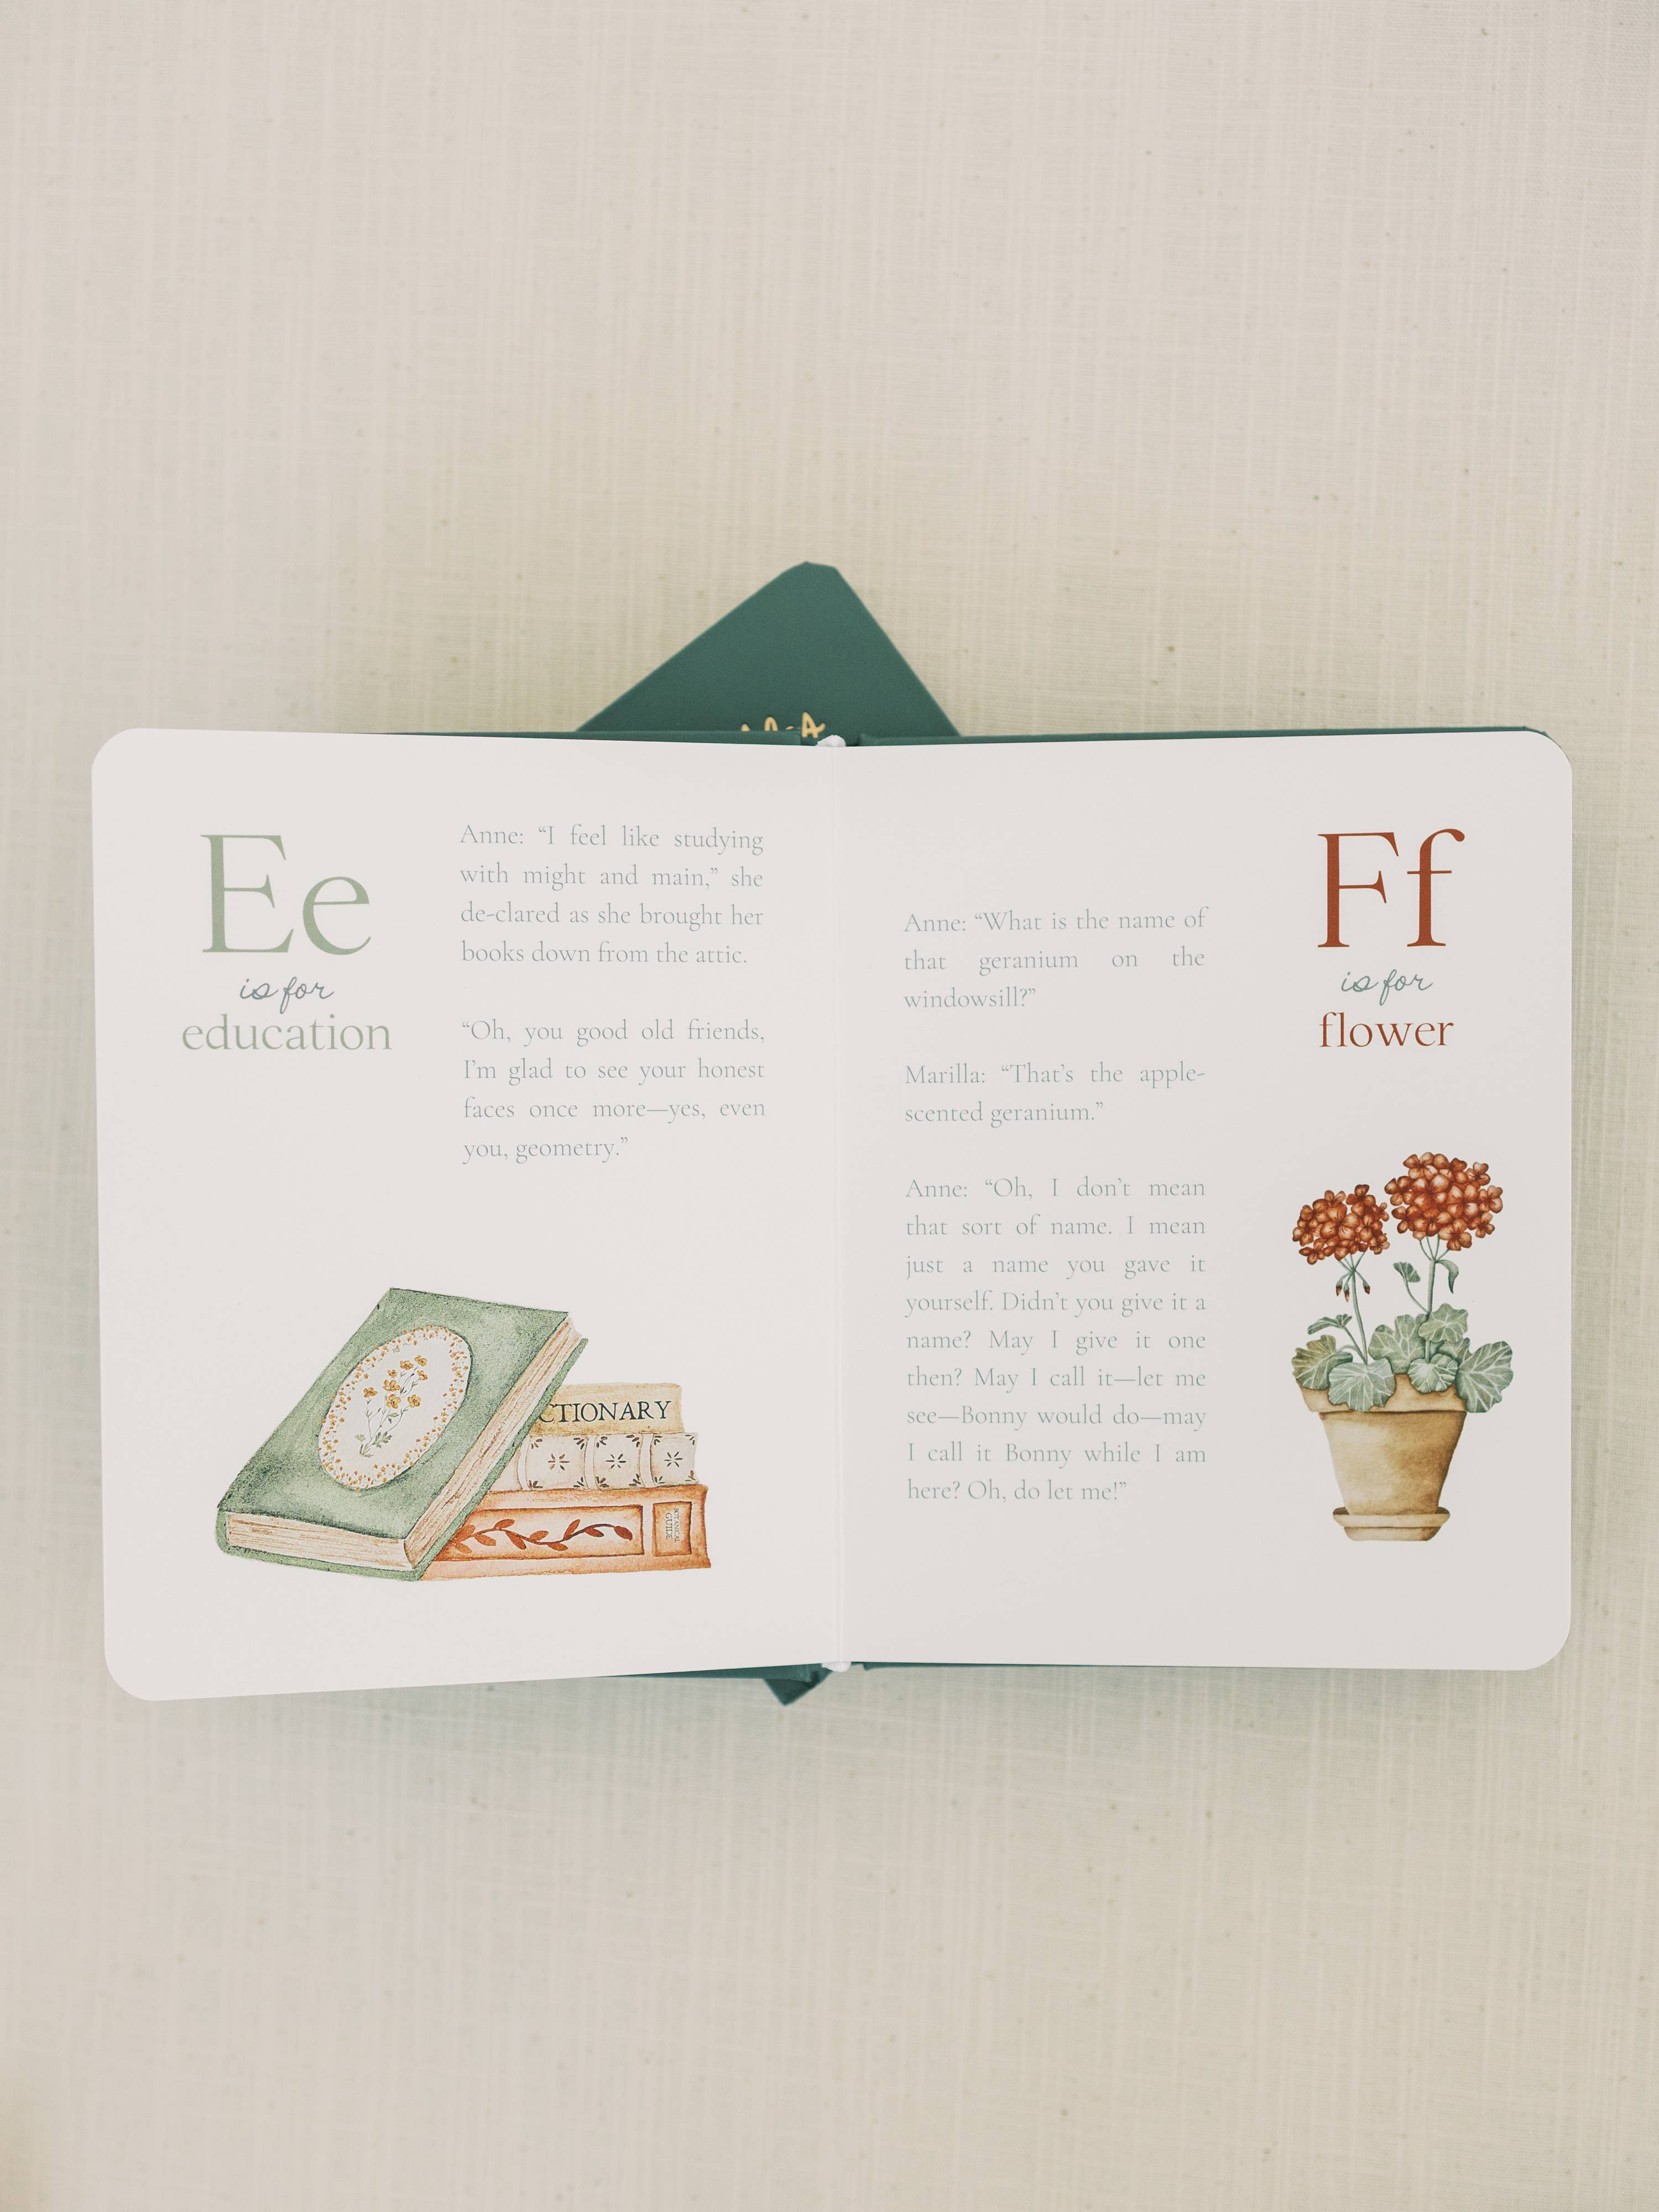 Ee
is for
education
Anne: “I feel like studying
with might and main,” she
de-clared as she brought her
books down from the attic.
“Oh, you good old friends,
I’m glad to see your honest
faces once more—yes, even
you, geometry.”
CTIONARY
BOTANICAL
GUIDE
Ff
is for
flower
Anne: “What is the name of
that geranium on the
windowsill?”
Marilla: “That’s the apple-
scented geranium.”
Anne: “Oh, I don’t mean
that sort of name. I mean
just a name you gave it
yourself. Didn’t you give it a
name? May I give it one
then? May I call it—let me
see—Bonny would do—may
I call it Bonny while I am
here? Oh, do let me!”